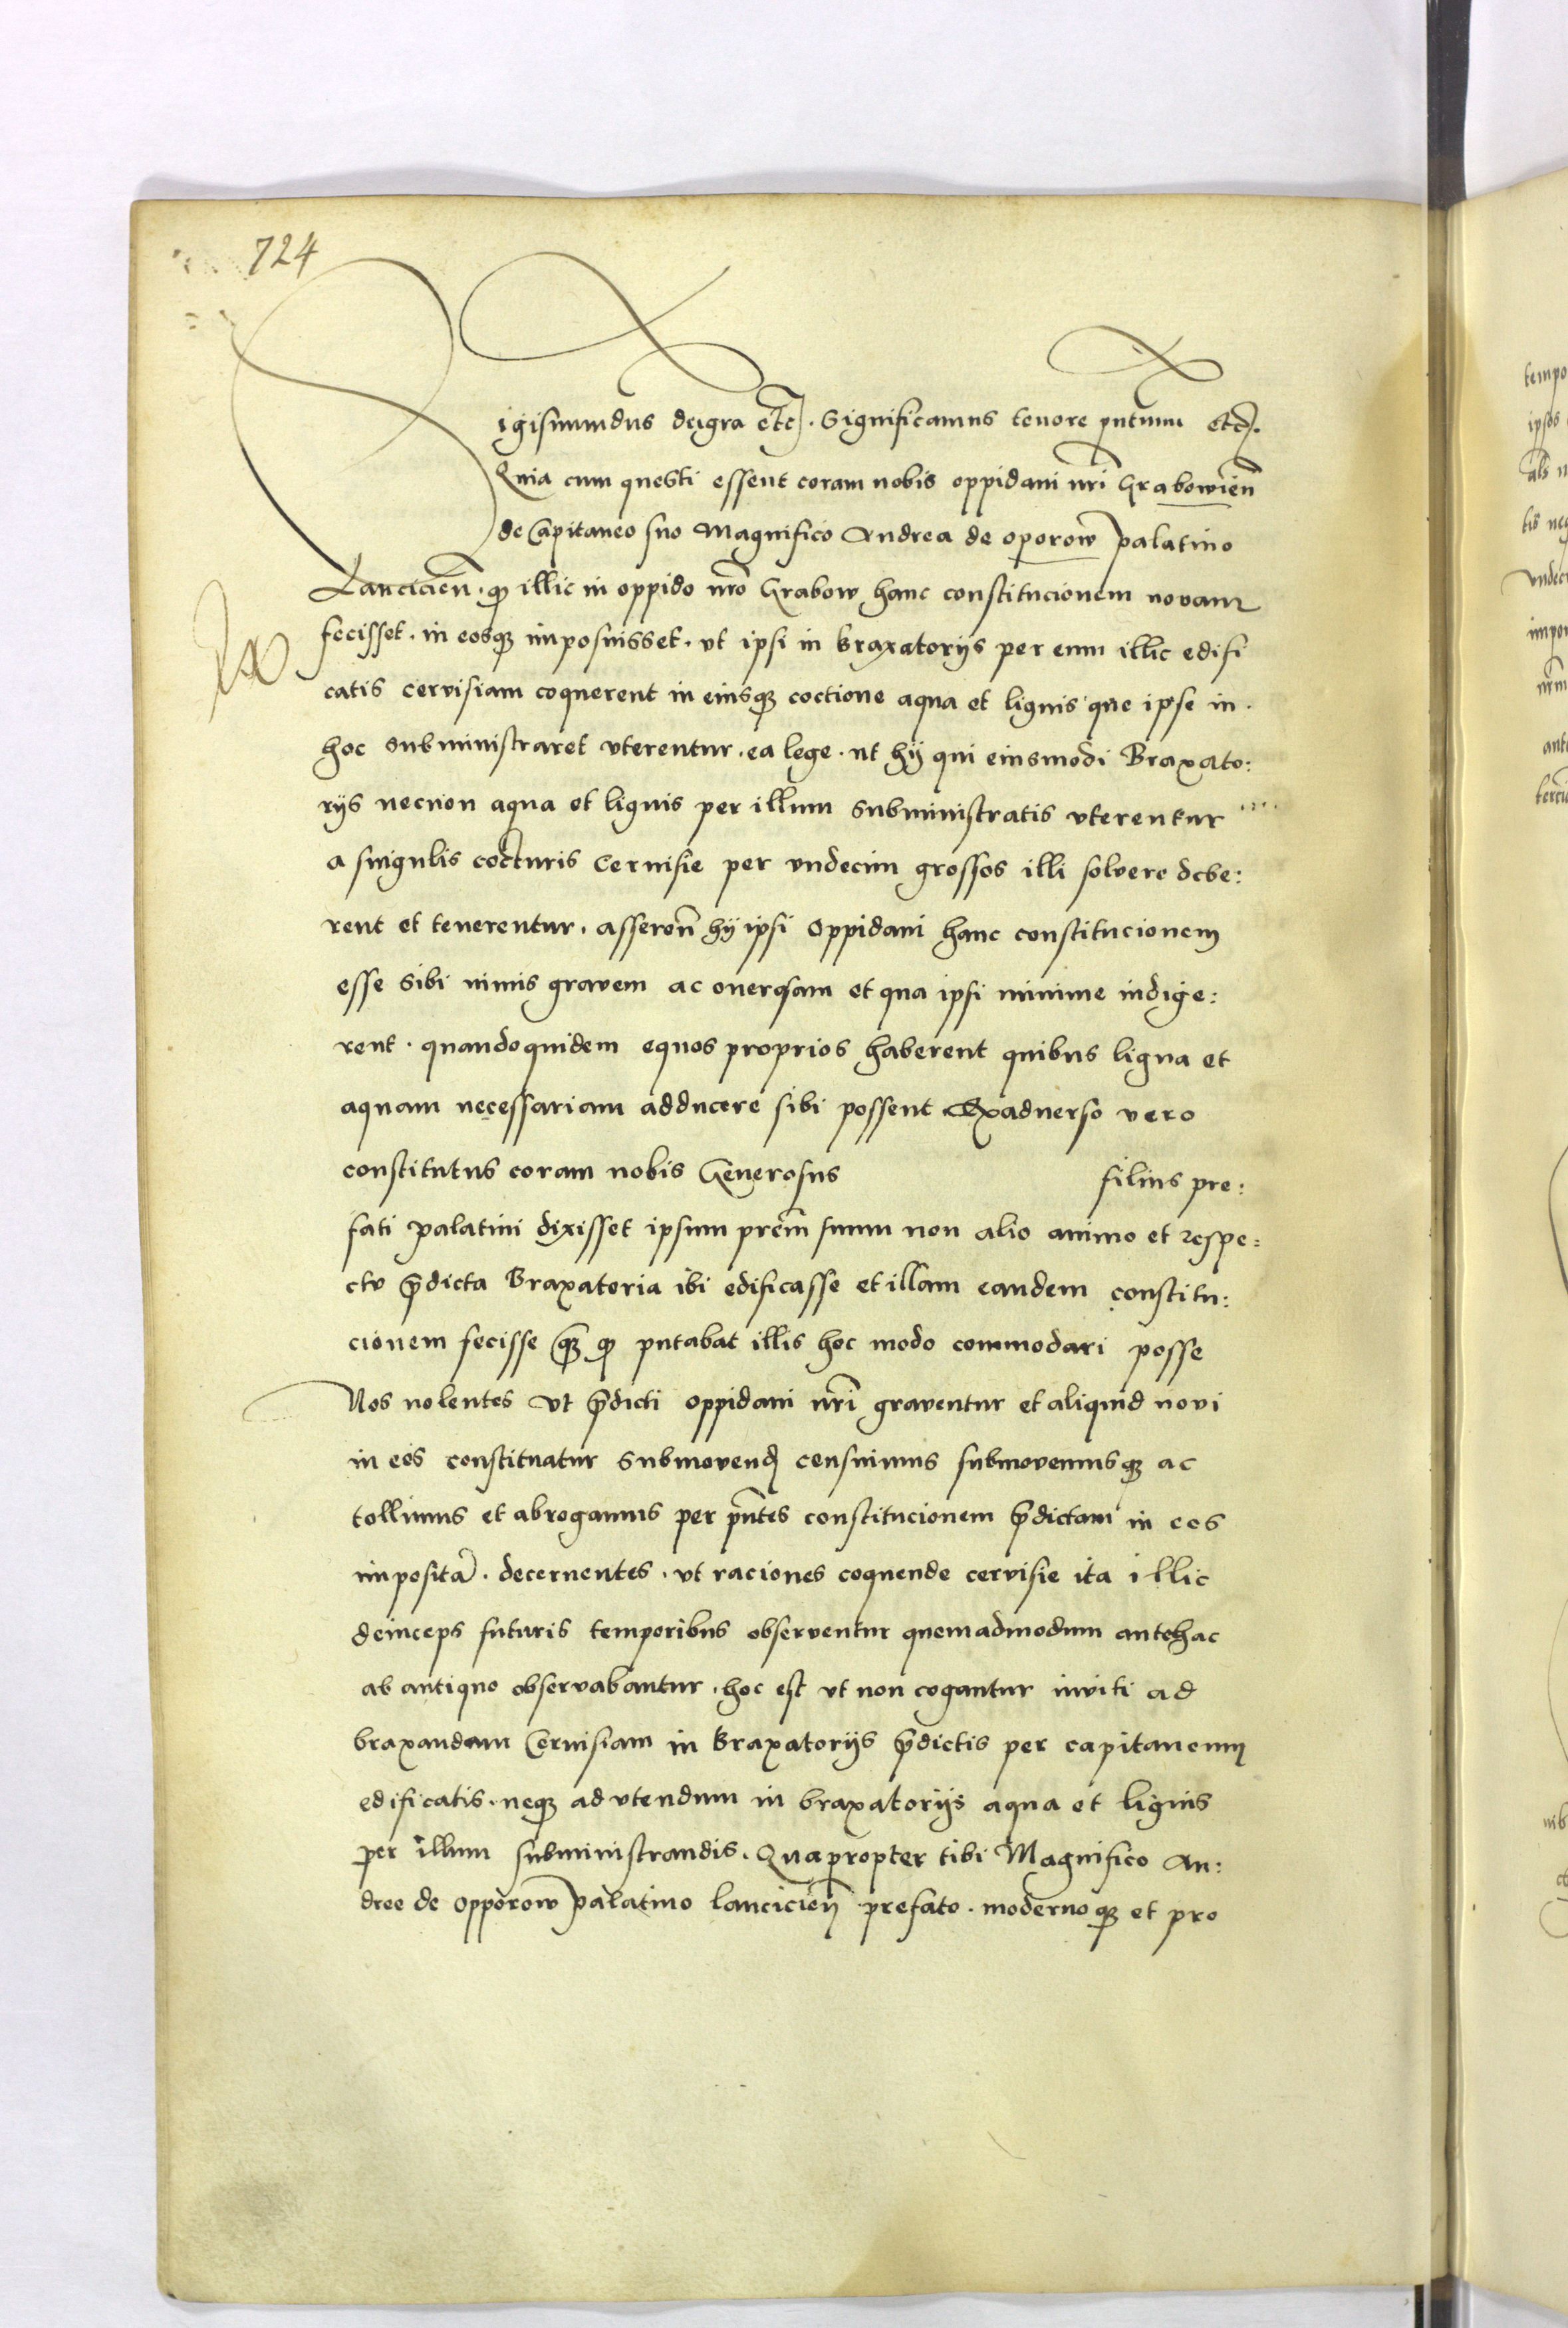 724
Sigismundus dei gra etc. Significamus tenore pntium etc.
Quia cum questi essent coram nobis oppidani nri Grabowien
de Capitaneo suo Magnifico Andrea de oporow palatino
Lancicien. qd illic in oppido nro Grabow hanc constitucionem novam
fecisset. in eosq imposuisset. ut ipsi in braxatorijs per eum illic edifi
catis cervisiam coquerent in eiusq coctione aqua et lignis que ipse in.
hoc subministraret uterentur. ea lege. ut hij qui eiusmodi Braxato:
rijs necnon aqua et lignis per illum subministratis uterentur ....
a singulis cocturis Cervisie per undecim grossos illi solvere debe:
rent et tenerentur. asseren hij ipsi oppidani hanc constitucionem
esse sibi nimis gravem ac onerosam et qua ipsi minime indige:
rent. quandoquidem equos proprios haberent quibus ligna et
aquam necessariam adducere sibi possent Exadverso vero
constitutus coram nobis Generosus filius pre:
fati palatini dixisset ipsum prem suum non alio animo et respe:
ctu pdicta Braxatoria ibi edificasse et illam eandem constitu:
cionem fecisse qz qd putabat illis hoc modo commodari posse
Nos nolentes ut pdicti oppidani nri graventur et aliquid novi
in eos constituatur submovend censuimus submovemusq ac
tollimus et abrogamus per pntes constitucionem pdictam in eos
imposita. decernentes. ut raciones coquende cervisie ita illic
deinceps futuris temporibus observentur quemadmodum antehac
ab antiquo observabantur. hoc est ut non cogantur inviti ad
braxandam Cervisiam in braxatorijs pdictis per capitaneum
edificatis. neq ad utendum in braxatorijs aqua et lignis
per illum subministrandis. Quapropter tibi Magnifico An:
dree de opporow palatino lancicien prefato. modernoq et pro